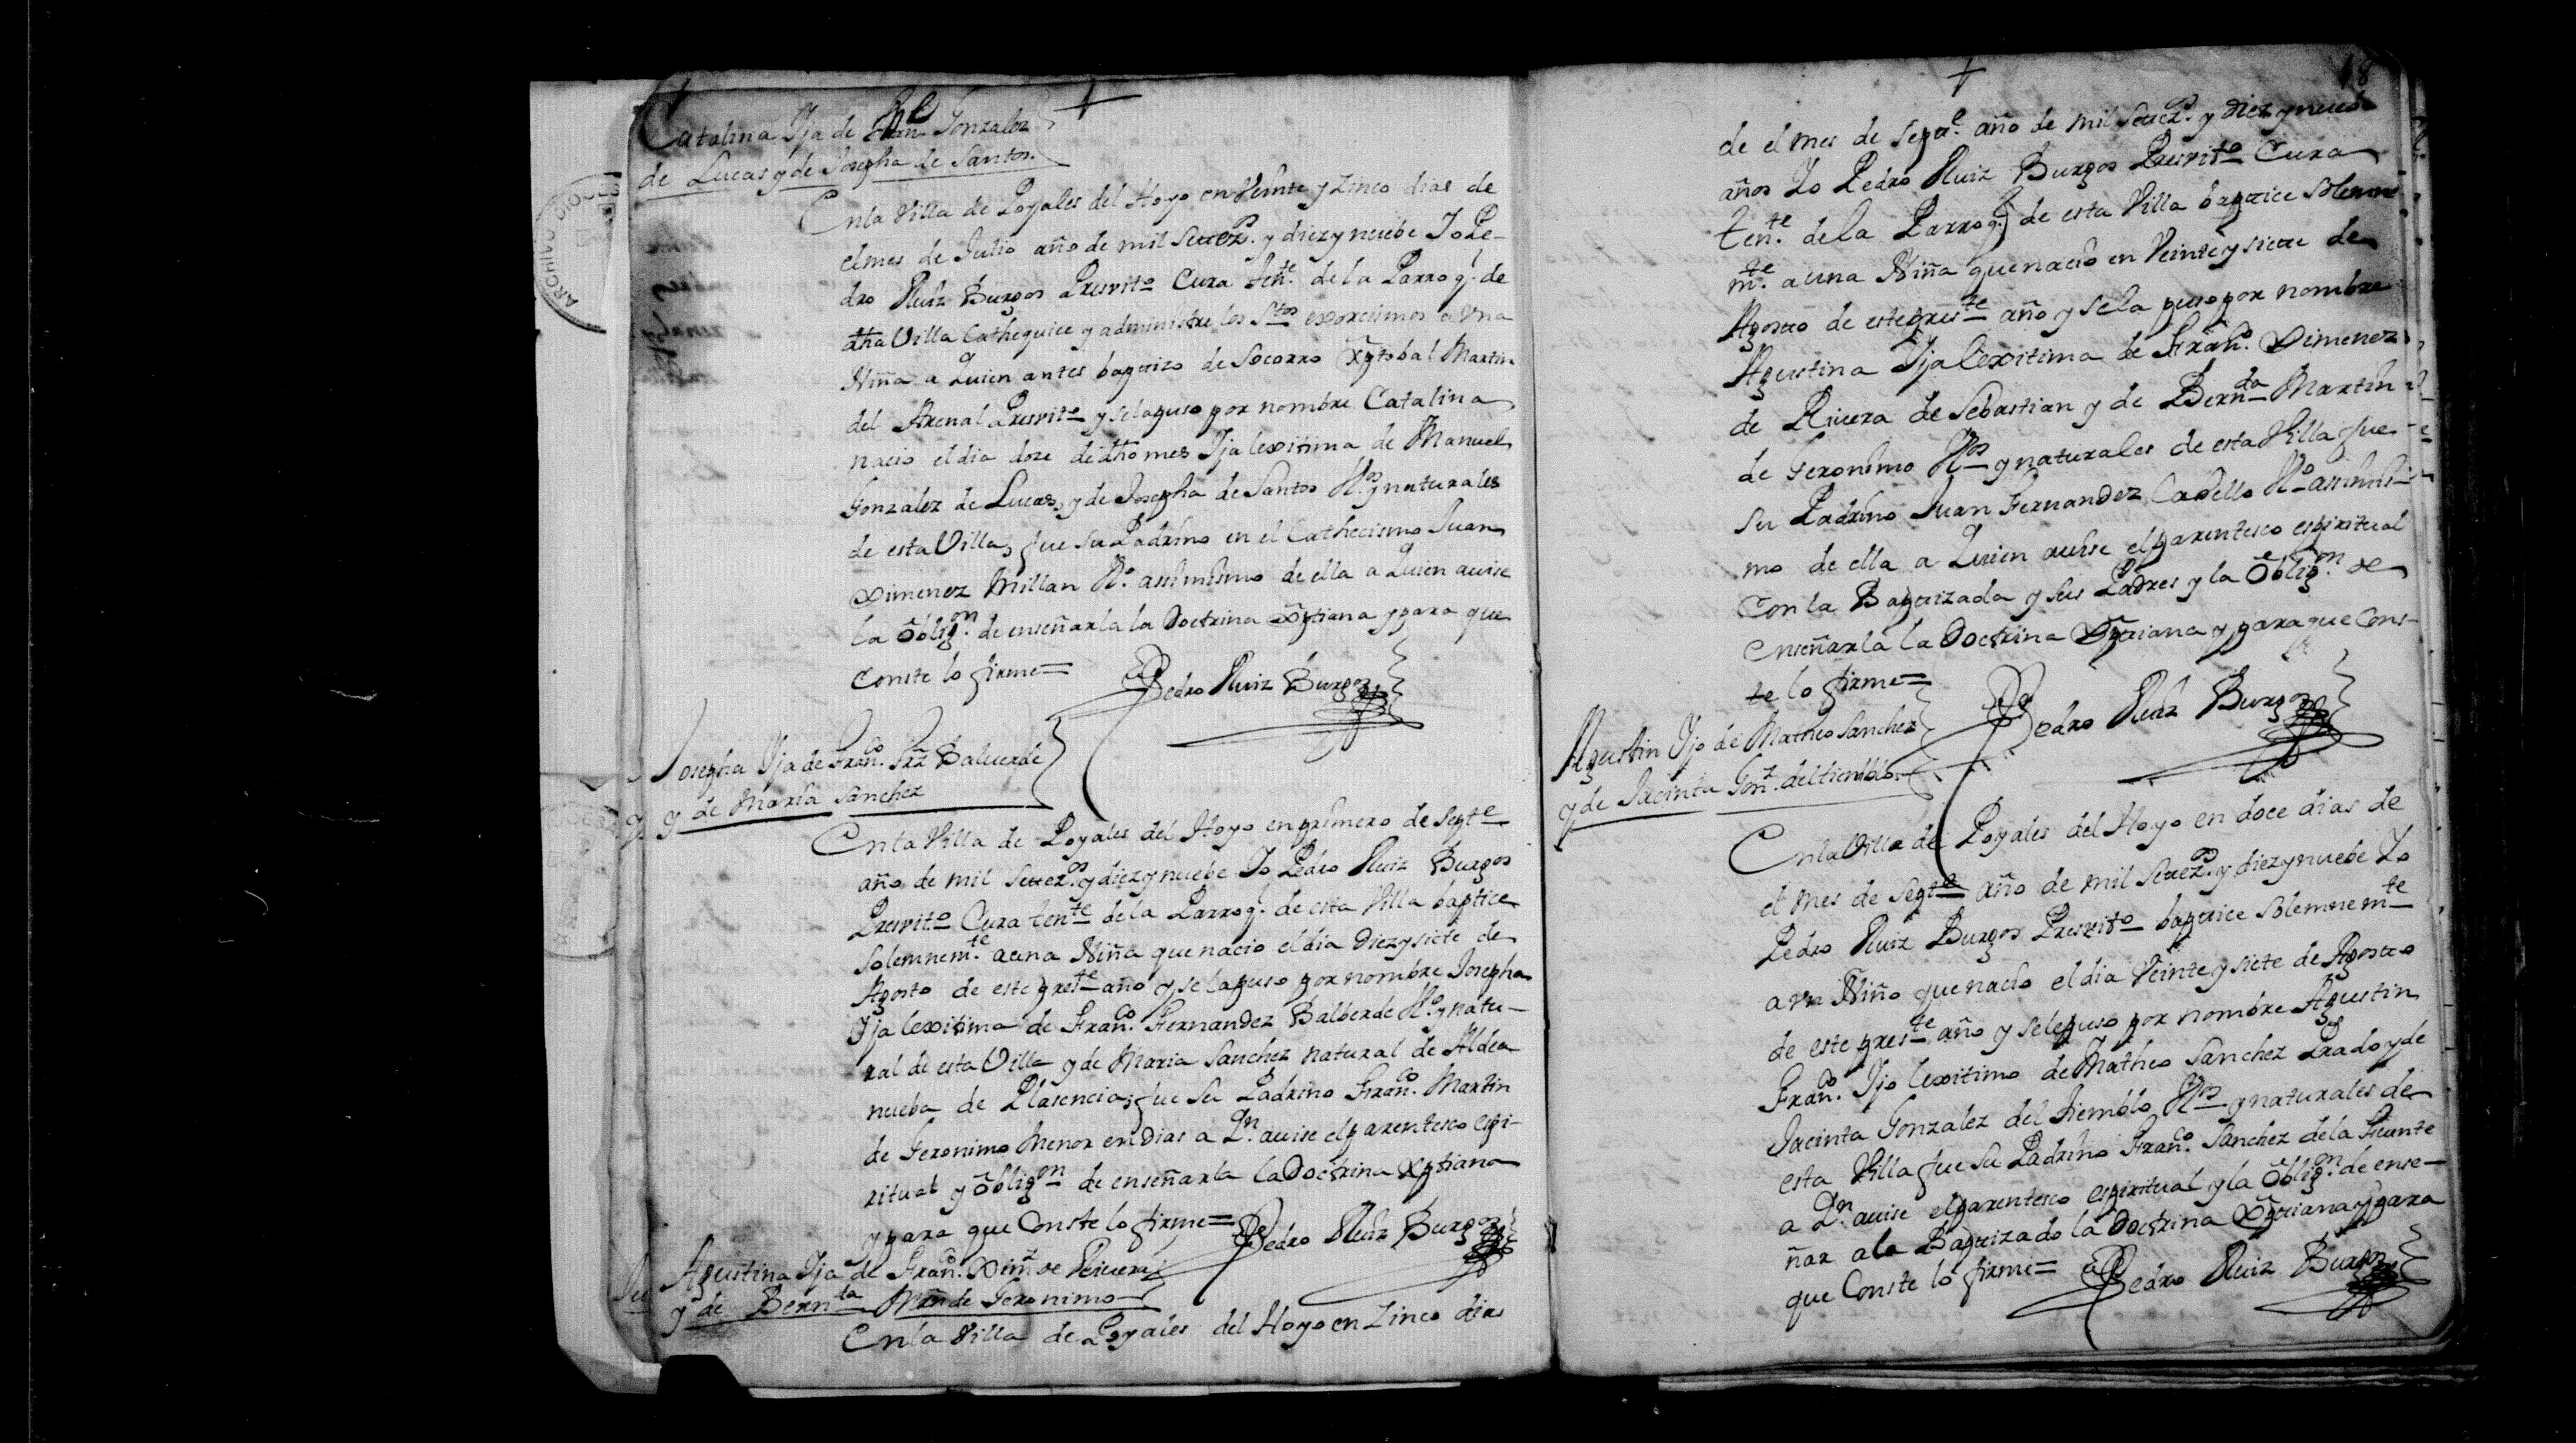 Catalina Yja de Man.l Gonzalez
de Lucas y de Josepha de Santos.
En la Villa de Poyales del Hoyo en Veinte y zinco dias de
el mes de Julio año de mil setez.os y diez y nuebe Yo Pe-
dro Ruiz Burgos Presvito Cura ten.te de la Parroq.l de
dha Villa Cathequice y administre los S.tos exorcismos a Vna
Niña a Quien antes baptizo de Socorro Xptobal Martin
del Arenal Presvito y se la puso por nombre Catalina
nacio el dia doze de dho mes Yja lexitima de Manuel
Gonzalez de Lucas, y de Josepha de Santos V.os y naturales
de esta Villa, fue su Padrino en el Cathecismo Juan
Ximenez Millan V.o assimismo de ella a Quien avise
la oblig.on de enseñarla la Doctrina Xptiana y para que
conste lo firme=
Pedro Ruiz Burgos
Josepha Yja de Fran.co Frz Balverde
y de Maria Sanchez
En la Villa de Poyales del Hoyo en primero de Sept.e
año de mil setez.os y diez y nuebe Yo Pedro Ruiz Burgos
Presvito Cura ten.te de la Parroq.l de esta Villa baptice
solemnem.te a una Niña que nacio el dia Diez y siete de
Agosto de este pres.te año y se la puso por nombre Josepha
Yja lexitima de Fran.co Fernandez Balberde V.o y natu-
ral de esta Villa y de Maria Sanchez natural de Aldea
nueba de Plasencia; fue su Padrino Fran.co Martin
de Geronimo Menor en dias a Q.n avise el parentesco espi-
ritual y oblig.on de enseñarla la Doctrina Xptiana
y para que Conste lo firme=
Pedro Ruiz Burgos
Agustina Yja de Fran.co Xim.z de Rivera
y de Bern.da Mrn de Geronimo
En la Villa de Poyales del Hoyo en zinco dias
18
de el mes de Sept.e año de mil setez.os y diez y nuebe
años Yo Pedro Ruiz Burgos Presvito Cura
ten.te de la Parroq.l de esta Villa baptice solemne
m.te a una Niña que nacio en Veinte y siete de
Agosto de este pres.te año y se la puso por nombre
Agustina Yja lexitima de Fran.co Ximenez
de Rivera de Sebastian y de Bern.da Martin
de Geronimo V.os y naturales de esta Villa fue
su Padrino Juan Fernandez Cadello V.o assimis-
mo de ella a Quien avise el parentesco espiritual
Con la Baptizada y sus Padres y la oblig.on de
enseñarla la Doctrina Xptiana y para que Cons-
te lo firme=
Pedro Ruiz Burgos
Agustin Yjo de Matheo Sanchez
y de Jacinta Gonz. del tiemblo
En la Villa de Poyales del Hoyo en doce dias de
el mes de Sept.e año de mil setez.os y diez y nuebe Yo
Pedro Ruiz Burgos Presvito baptice solemnem.te
a vn Niño que nacio el dia Veinte y siete de Agosto
de este pres.te año y se le puso por nombre Agustin
Fran.co Yjo lexitimo de Matheo Sanchez Prado y de
Jacinta Gonzalez del Tiemblo V.os y naturales de
esta Villa fue su Padrino Fran.co Sanchez de la Fuente
a Q.n avise el parentesco espiritual y la oblig.on de ense-
ñar a la Baptizado la Doctrina Xptiana y para
que Conste lo firme=
Pedro Ruiz Burgos